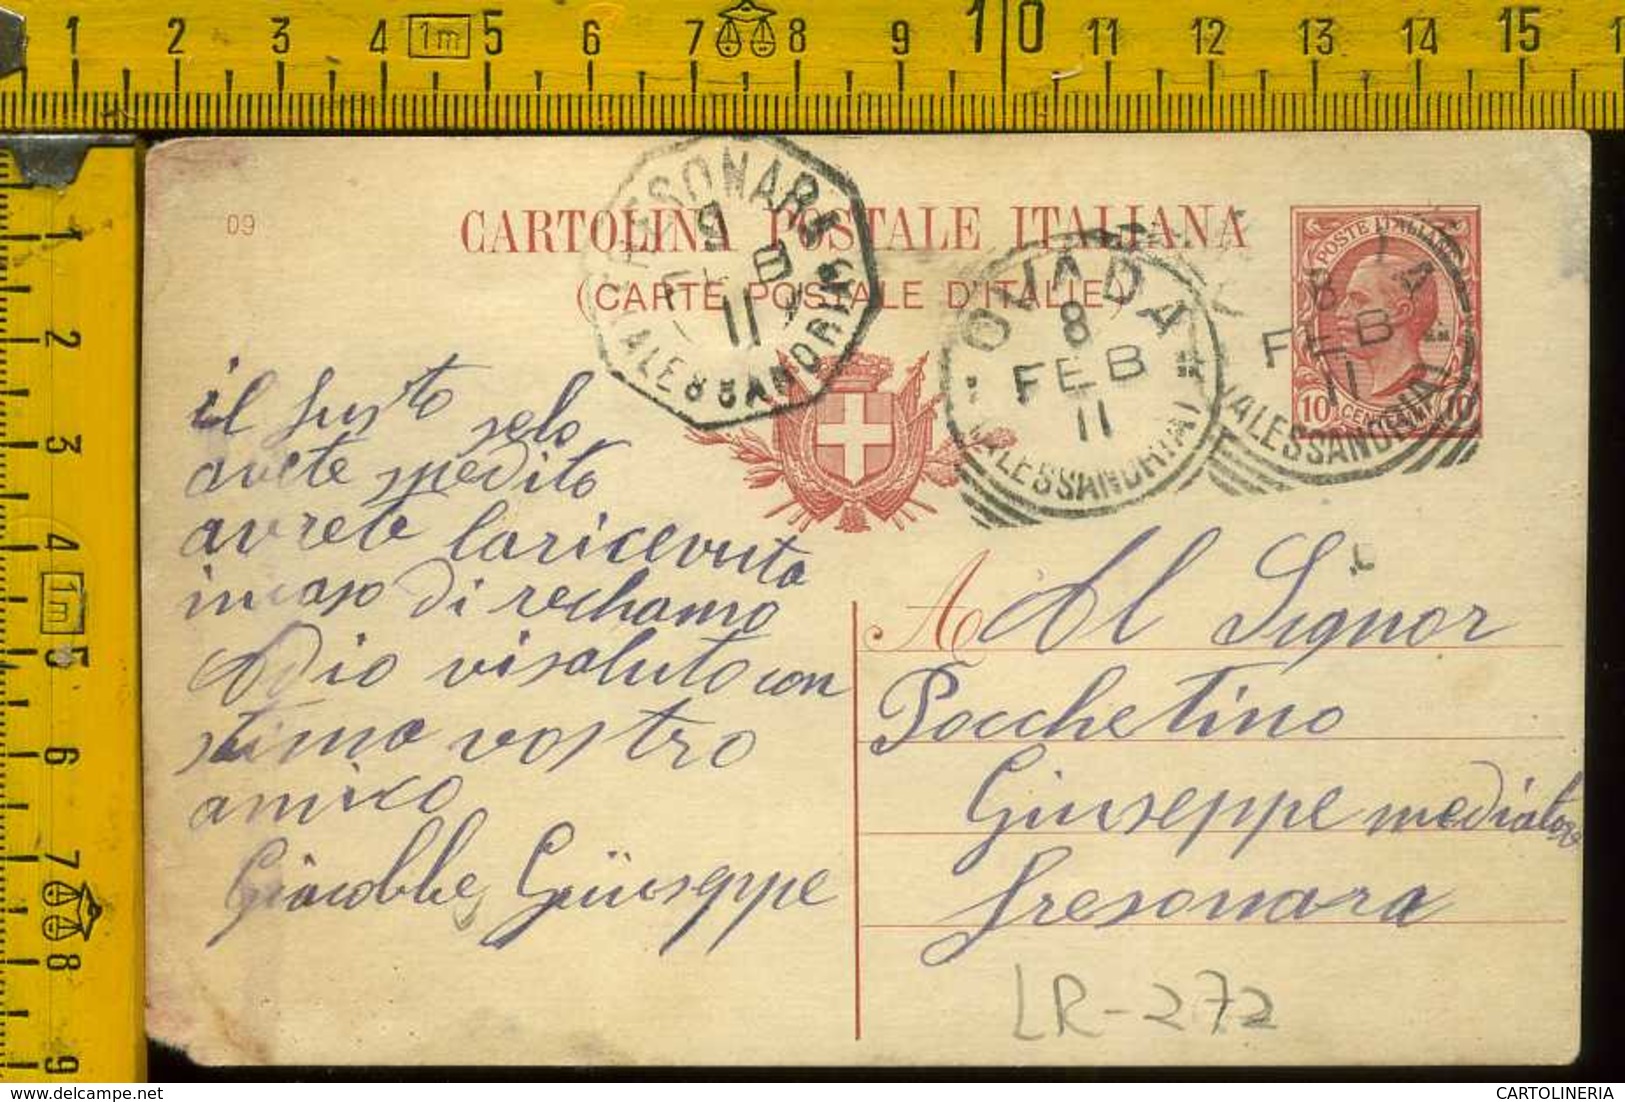 1 2 3 4 1m 5 6 7 8 9 10 11 12 13 14 15 1
1 2 3 4 1m 5 6 7 8 9
09
CARTOLINA POSTALE ITALIANA
(CARTE POSTALE D'ITALIE)
FRESONARA
9
FEB
11
(ALESSANDRIA)
OVADA
8
FEB
11
(ALESSANDRIA)
8
FEB
11
(ALESSANDRIA)
POSTE ITALIANE
10 CENTESIMI 10
il fusto selo
avete spedito
avrete laricevuta
incaso di rechamo
Adio visaluto con
stima vostro
amico
Giacobbe Giüseppe
A Al Signor
Pocchetino
Giuseppe mediatore
Fresonara
LR-272
CARTOLINERIA